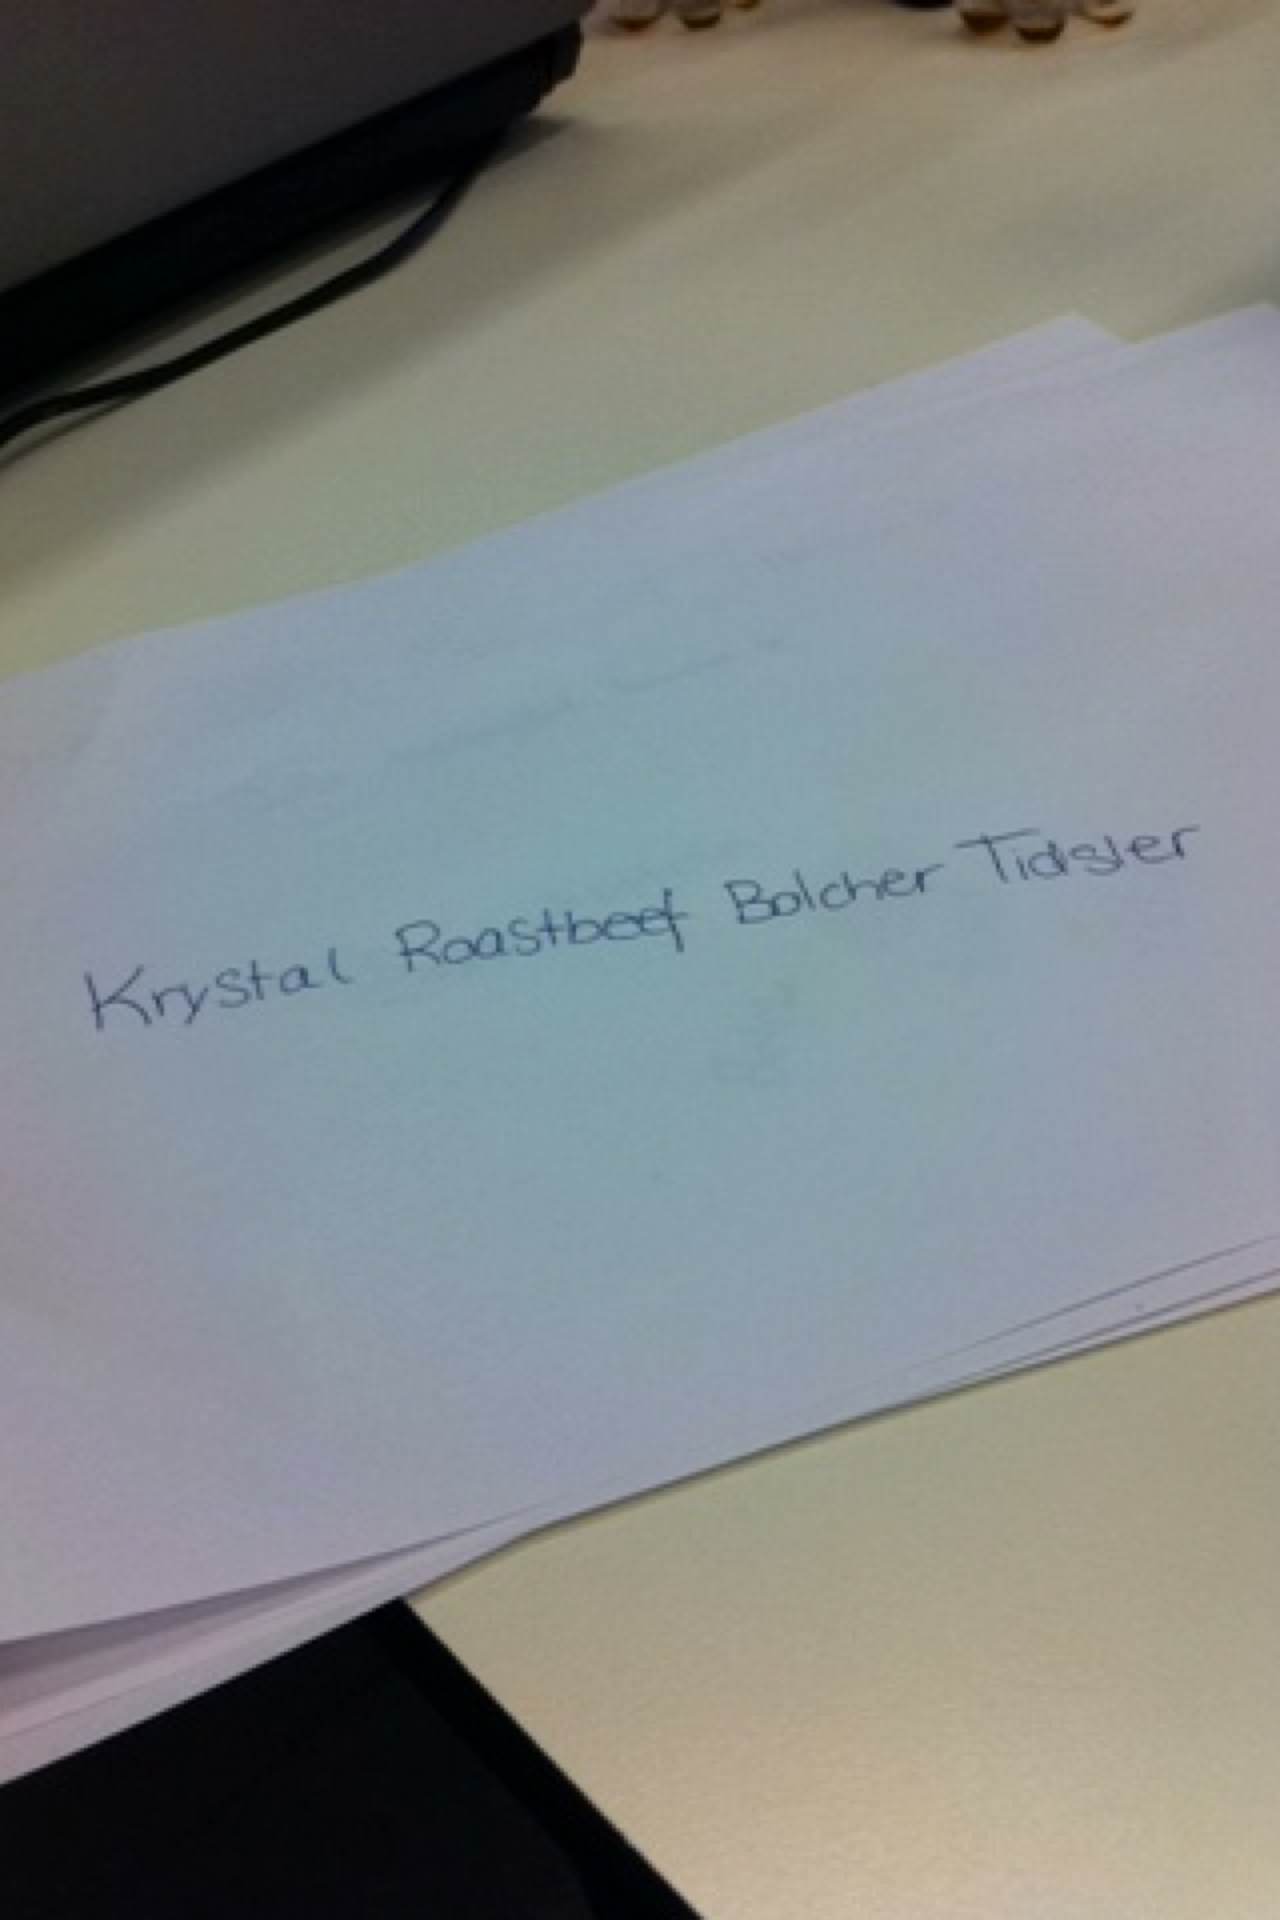 Krystal Roastbeef Bolcher Tidsler